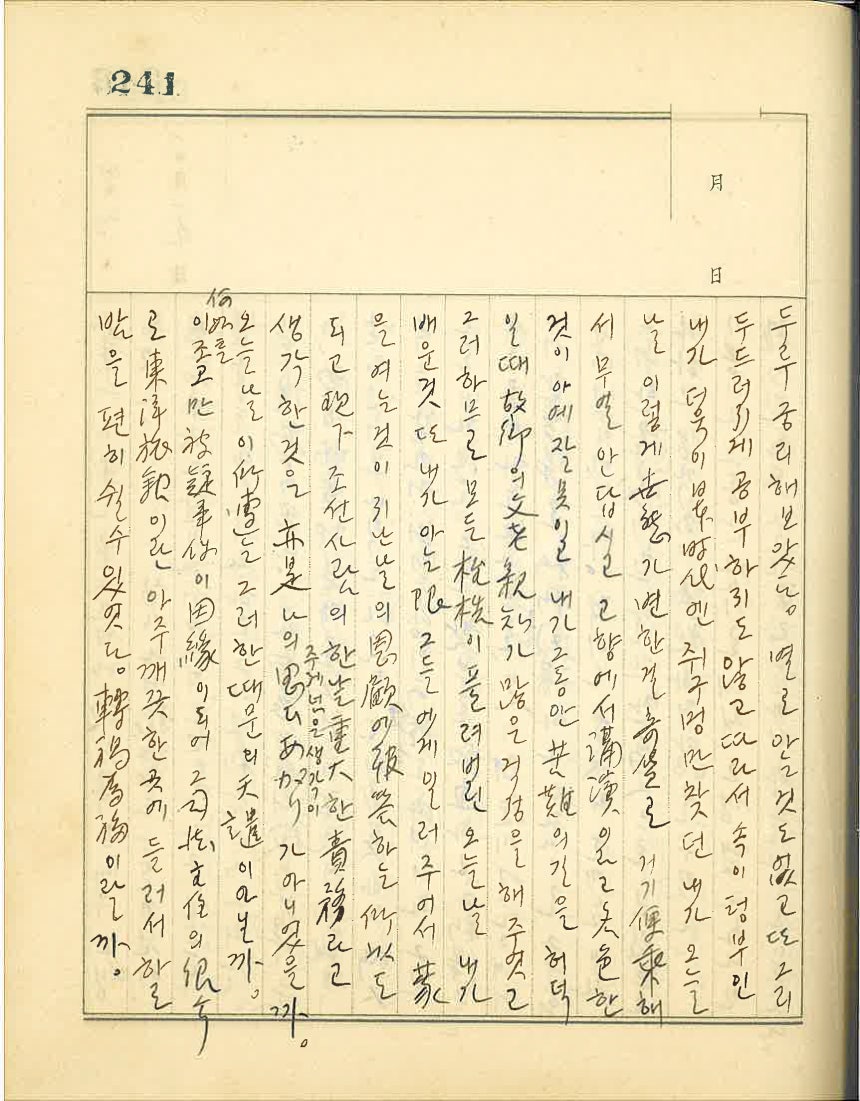 241
月
日
두루 궁리해 보았능 별로 안 것도 없고 또 그리
두드러지게 공부하지도 않고 따라서 속이 텅 부인
내가 더욱이 某時代엔 쥐구멍만 찾던 내가 오늘
날 이렇게 世態가 변한걸 거기 便乘해
서 무얼 안답시고 고향에서 한
것이 아예 잘못이고 내가 그동안 苦難의 길을 허덕
일 때 故鄕의 父老親知가 많은 걱정을 해주엇고
그러하므로 모든 이 풀려버린 오늘날 내가
배운것 또 내가 아는 限 그들에게 일러주어서 蒙
을 여는것이 지난날의 恩顧에 報答하는 도
되고 現下 조선사람의 한낱 重大한 責務라고
생각한 것을 亦是 나의 주제넘은 생각이 가 아니엇을까。
오늘날 이 는 그러한 때문의 天譴이 아닐까。
何如튼 이 조고만 被疑事件이 因緣이 되어 그 의
로 東津旅館이란 아주 깨끗한 곳에 들러서 하로
밤을 편히 쉴 수 있엇다。轉禍爲福이랄까。